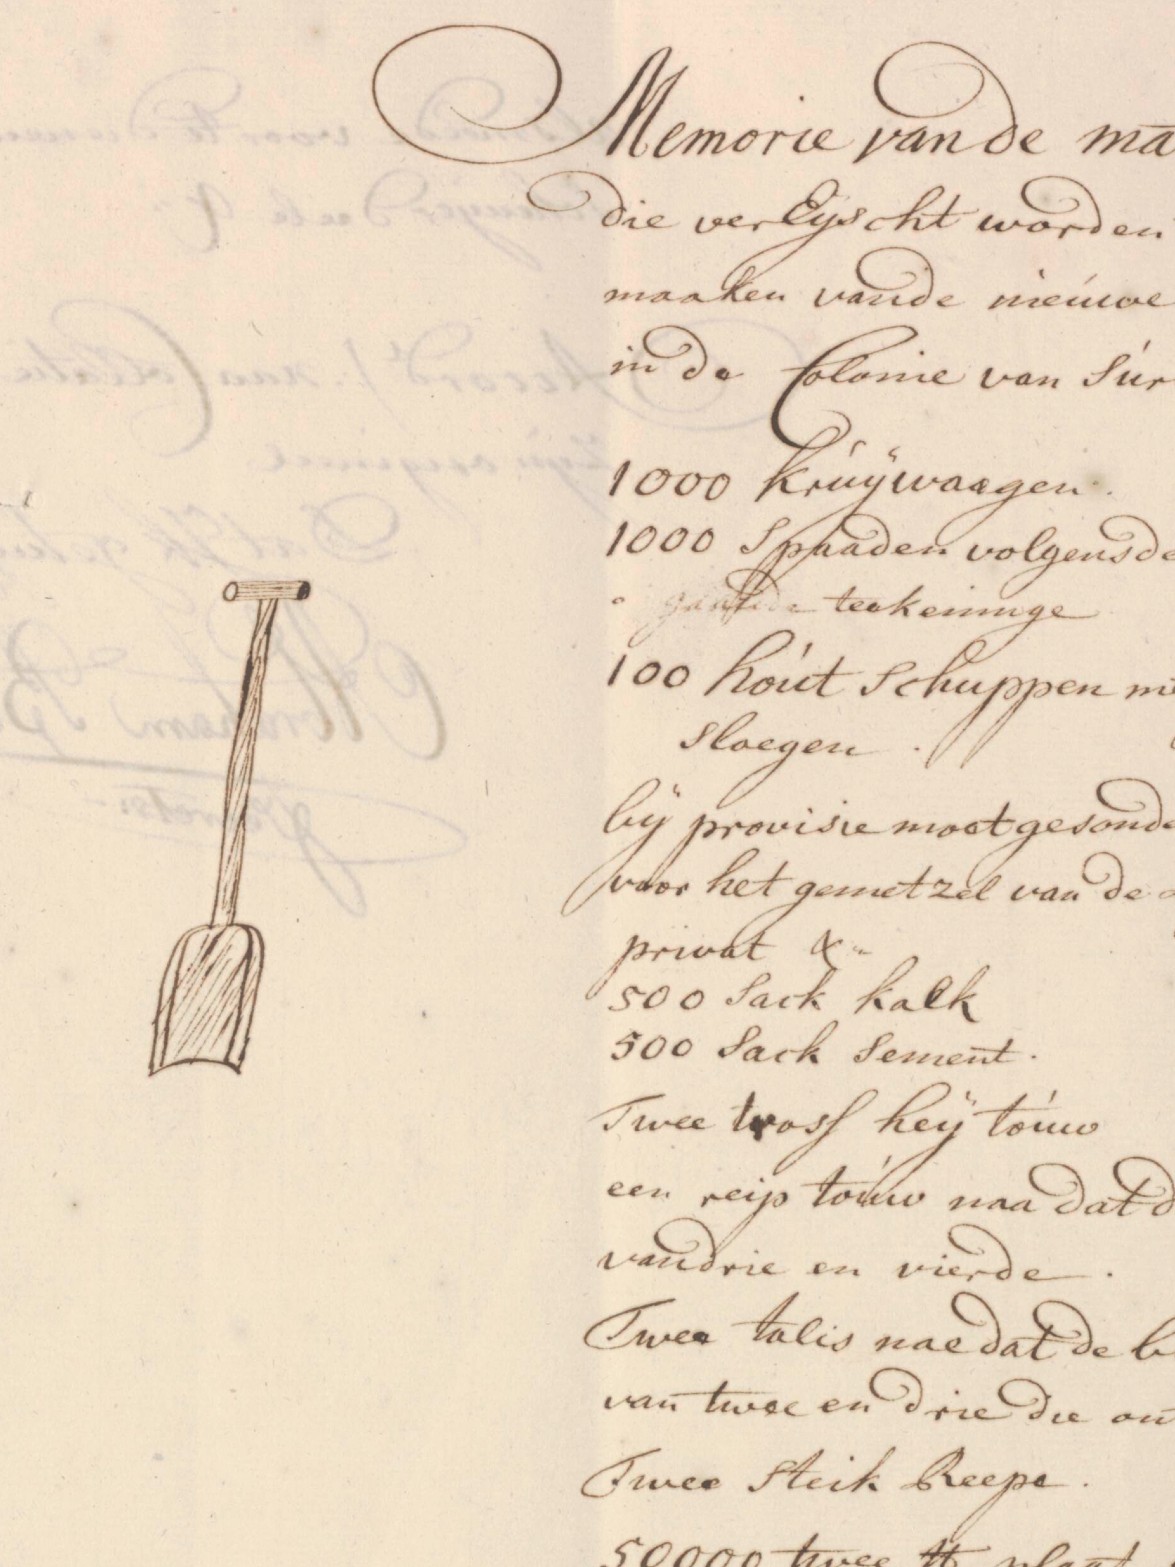 Memorie van de ma
die verEyscht worden
maaken vande nieuwe
in de Colonie van Sur
1000 kruÿwaagen.
1000 Spaaden volgens de
gaande teekeninge
100 hout Schuppen
sloegen.
bÿ provisie moet gesonde
voor het gemetzel van de
privat &
500 Sack kalk
500 Sack Sement.
Twee tross heÿ touw
een reip touw naa dat d
van drie en vierde.
Twee talis nae dat de b
van twee en drie die
Twee Steik Reepe.
50000 twee